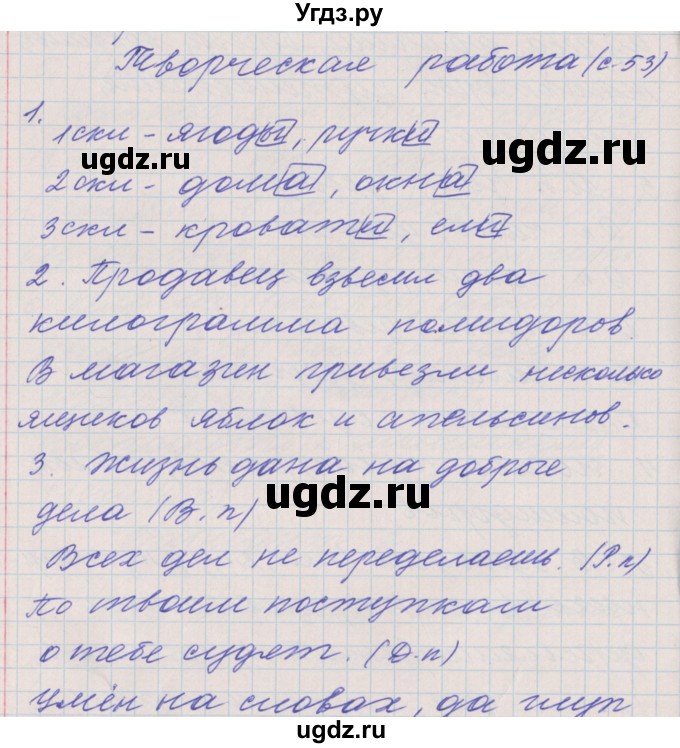 Угдз.ру
Творческая работа (с. 53)
1.
1 скл - ягоды, ручки
ugdz.ru
ugdz.ru
2 скл - дома, окна
3 скл - кровати, ели
2. Продавец взвесил два
килограмма помидоров.
В магазин привезли несколько
ящиков яблок и апельсинов.
3. Жизнь дана на добрые
ugdz.ru
дела (В. п)
Всех дел не переделаешь. (Р. п)
По твоим поступкам
о тебе судят. (Д. п)
ugdz.ru
Умён на словах, да глуп
ugdz.ru
ugdz.ru